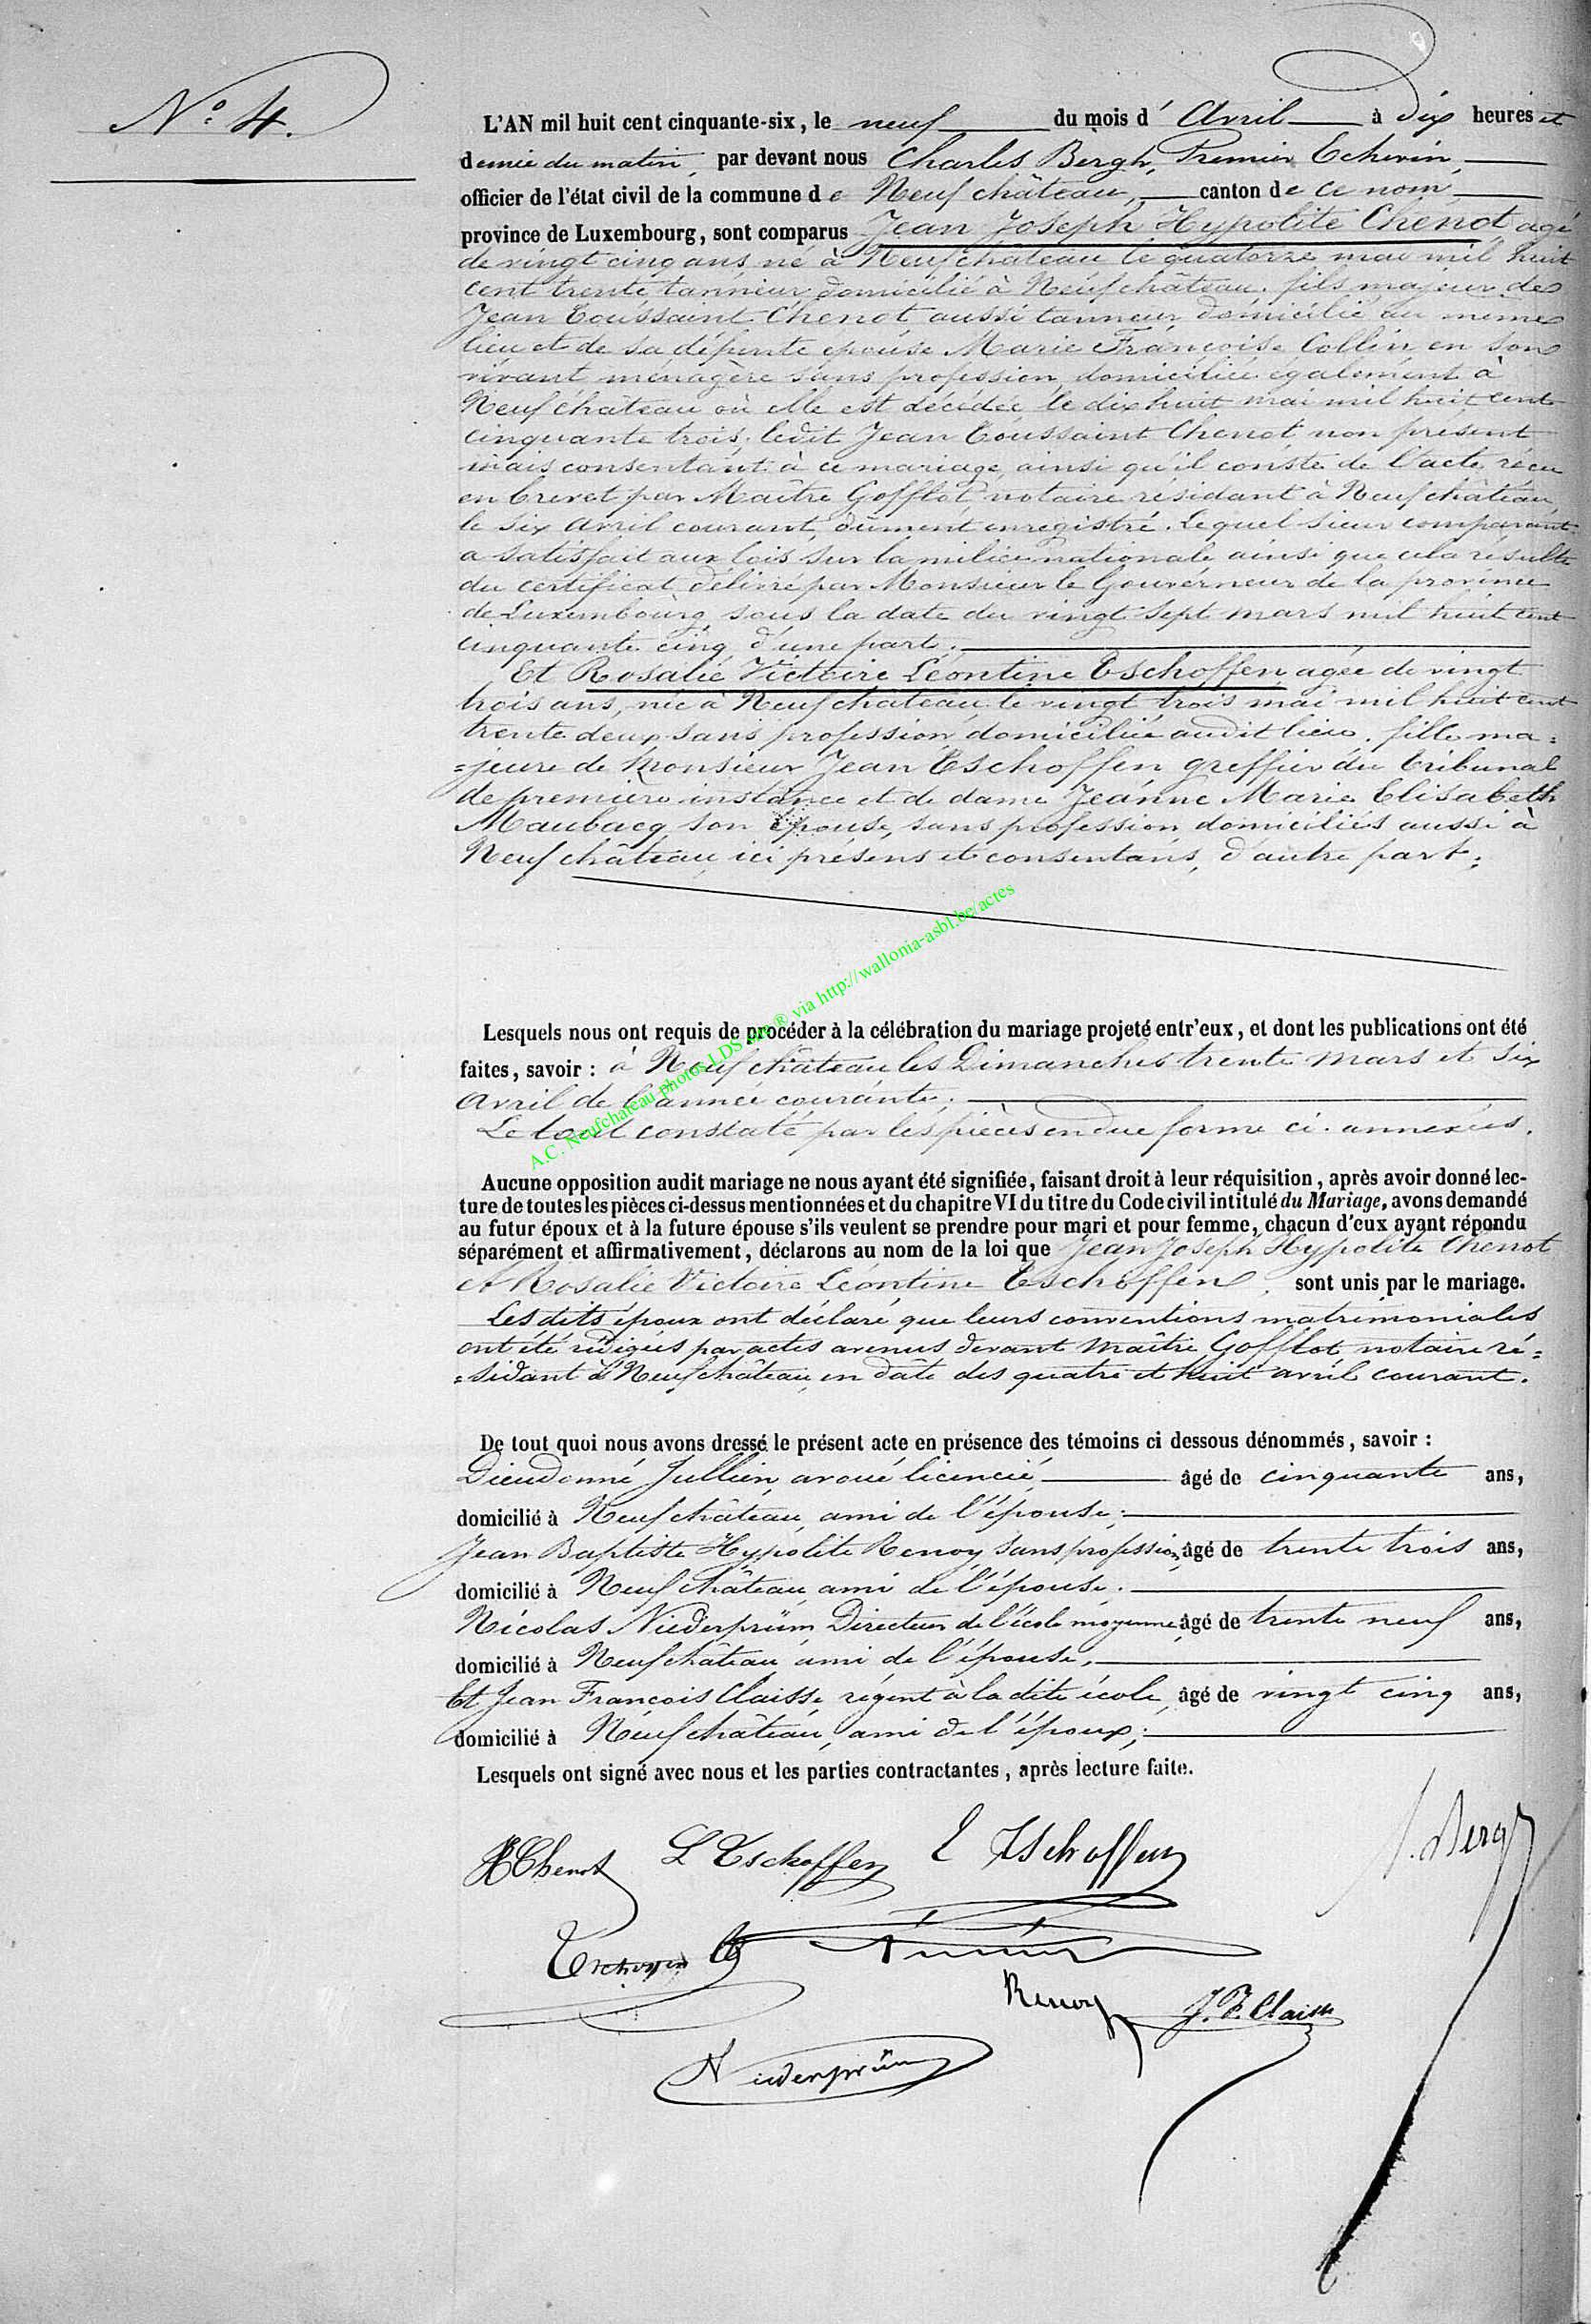 N° 4.
L'AN mil huit cent cinquante-six, le neuf du mois d' Avril à dix heures et
demie du matin, par devant nous Charles Bergh, Premier Echevin,
officier de l'état civil de la commune de Neufchâteau, canton de ce nom,
province de Luxembourg, sont comparus Jean Joseph Hypolite Chenot agé
de vingt cinq ans, né à Neufchâteau le quatorze mai mil huit
cent trente, tanneur, domicilié à Neufchâteau, fils majeur de
Jean Toussaint Chenot aussi tanneur domicilié au même
lieu et de sa défunte épouse Marie Françoise Collin en son
vivant ménagère sans profession domiciliée également à
Neufchâteau où elle est décédée le dix huit mai mil huit cent
cinquante trois; ledit Jean Toussaint Chenot non présent
mais consentant à ce mariage, ainsi qu'il conste de l'acte récu
en brevet par Maître Gofflot, notaire résidant à Neufchâteau,
le six avril courant, dûment enregistré. Lequel sieur comparant
a satisfait aux lois sur la milice nationale ainsi que cela résulte
du certificat délivré par Monsieur le Gouverneur de la province
de Luxembourg sous la date du vingt sept mars mil huit cent
cinquante cinq d'une part;
Et Rosalie Victoire Léontine Tschoffen agée de vingt
trois ans, née à Neufchâteau le vingt trois mai mil huit cent
trente deux sans profession, domiciliée audit lieu, fille ma=
=jeure de Monsieur Jean Tschoffen greffier du tribunal
de première instance et de dame Jeanne Marie Elisabeth
Maubacq son épouse, sans profession domiciliés aussi à
Neufchâteau, ici présens et consentans, d'autre part;
Lesquels nous ont requis de procéder à la célébration du mariage projeté entr'eux, et dont les publications ont été
faites, savoir : à Neufchâteau les Dimanches trente mars et six
avril de l'année courante;
Le tout constaté par les pièces en due forme ci-annexées.
A.C. Neufchateau photos LDS ® via http://wallonia-asbl.be/actes
Aucune opposition audit mariage ne nous ayant été signifiée, faisant droit à leur réquisition, après avoir donné lec-
ture de toutes les pièces ci-dessus mentionnées et du chapitre VI du titre du Code civil intitulé du Mariage, avons demandé
au futur époux et à la future épouse s'ils veulent se prendre pour mari et pour femme, chacun d'eux ayant répondu
séparément et affirmativement, déclarons au nom de la loi que Jean Joseph Hypolite Chenot
et Rosalie Victoire Léontine Tschoffen, sont unis par le mariage.
Les dits époux ont déclaré que leurs conventions matrimoniales
ont été rédigées par actes avenus devant Maître Gofflot notaire ré=
=sidant à Neufchâteau, en date des quatre et huit avril courant.
De tout quoi nous avons dressé le présent acte en présence des témoins ci dessous dénommés, savoir :
Dieudonné Jullien, avoué licencié, âgé de cinquante ans,
domicilié à Neufchâteau, ami de l'épouse;
Jean Baptiste Hypolite Renoy, sans profession, âgé de trente trois ans,
domicilié à Neufchâteau ami de l'épouse.
Nicolas Niederprüm Directeur de l'école moyenne, âgé de trente neuf ans,
domicilié à Neufchâteau ami de l'épouse.
Et Jean François Claisse, régent à la dite école, âgé de vingt cinq ans,
domicilié à Neufchâteau, ami de l'époux;
Lesquels ont signé avec nous et les parties contractantes, après lecture faite.
HChenot L Tschoffen E Tschoffen Bergh
Tschoffen
Renoy J. F. Claisse
Niederprüm